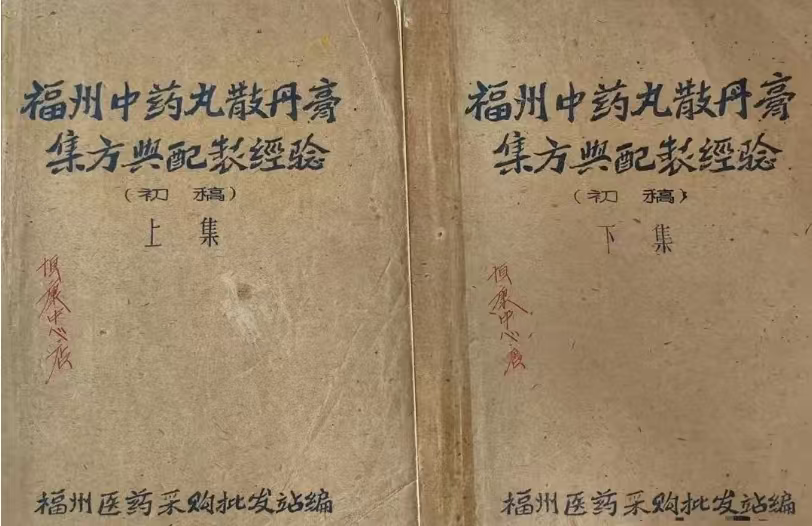 福州中药丸散丹膏
集方與配製經验
（初稿）
上集
恒康中心店
福州医药采购批发站編
福州中药丸散丹膏
集方與配製經验
（初稿）
下集
恒康中心店
福州医药采购批发站編